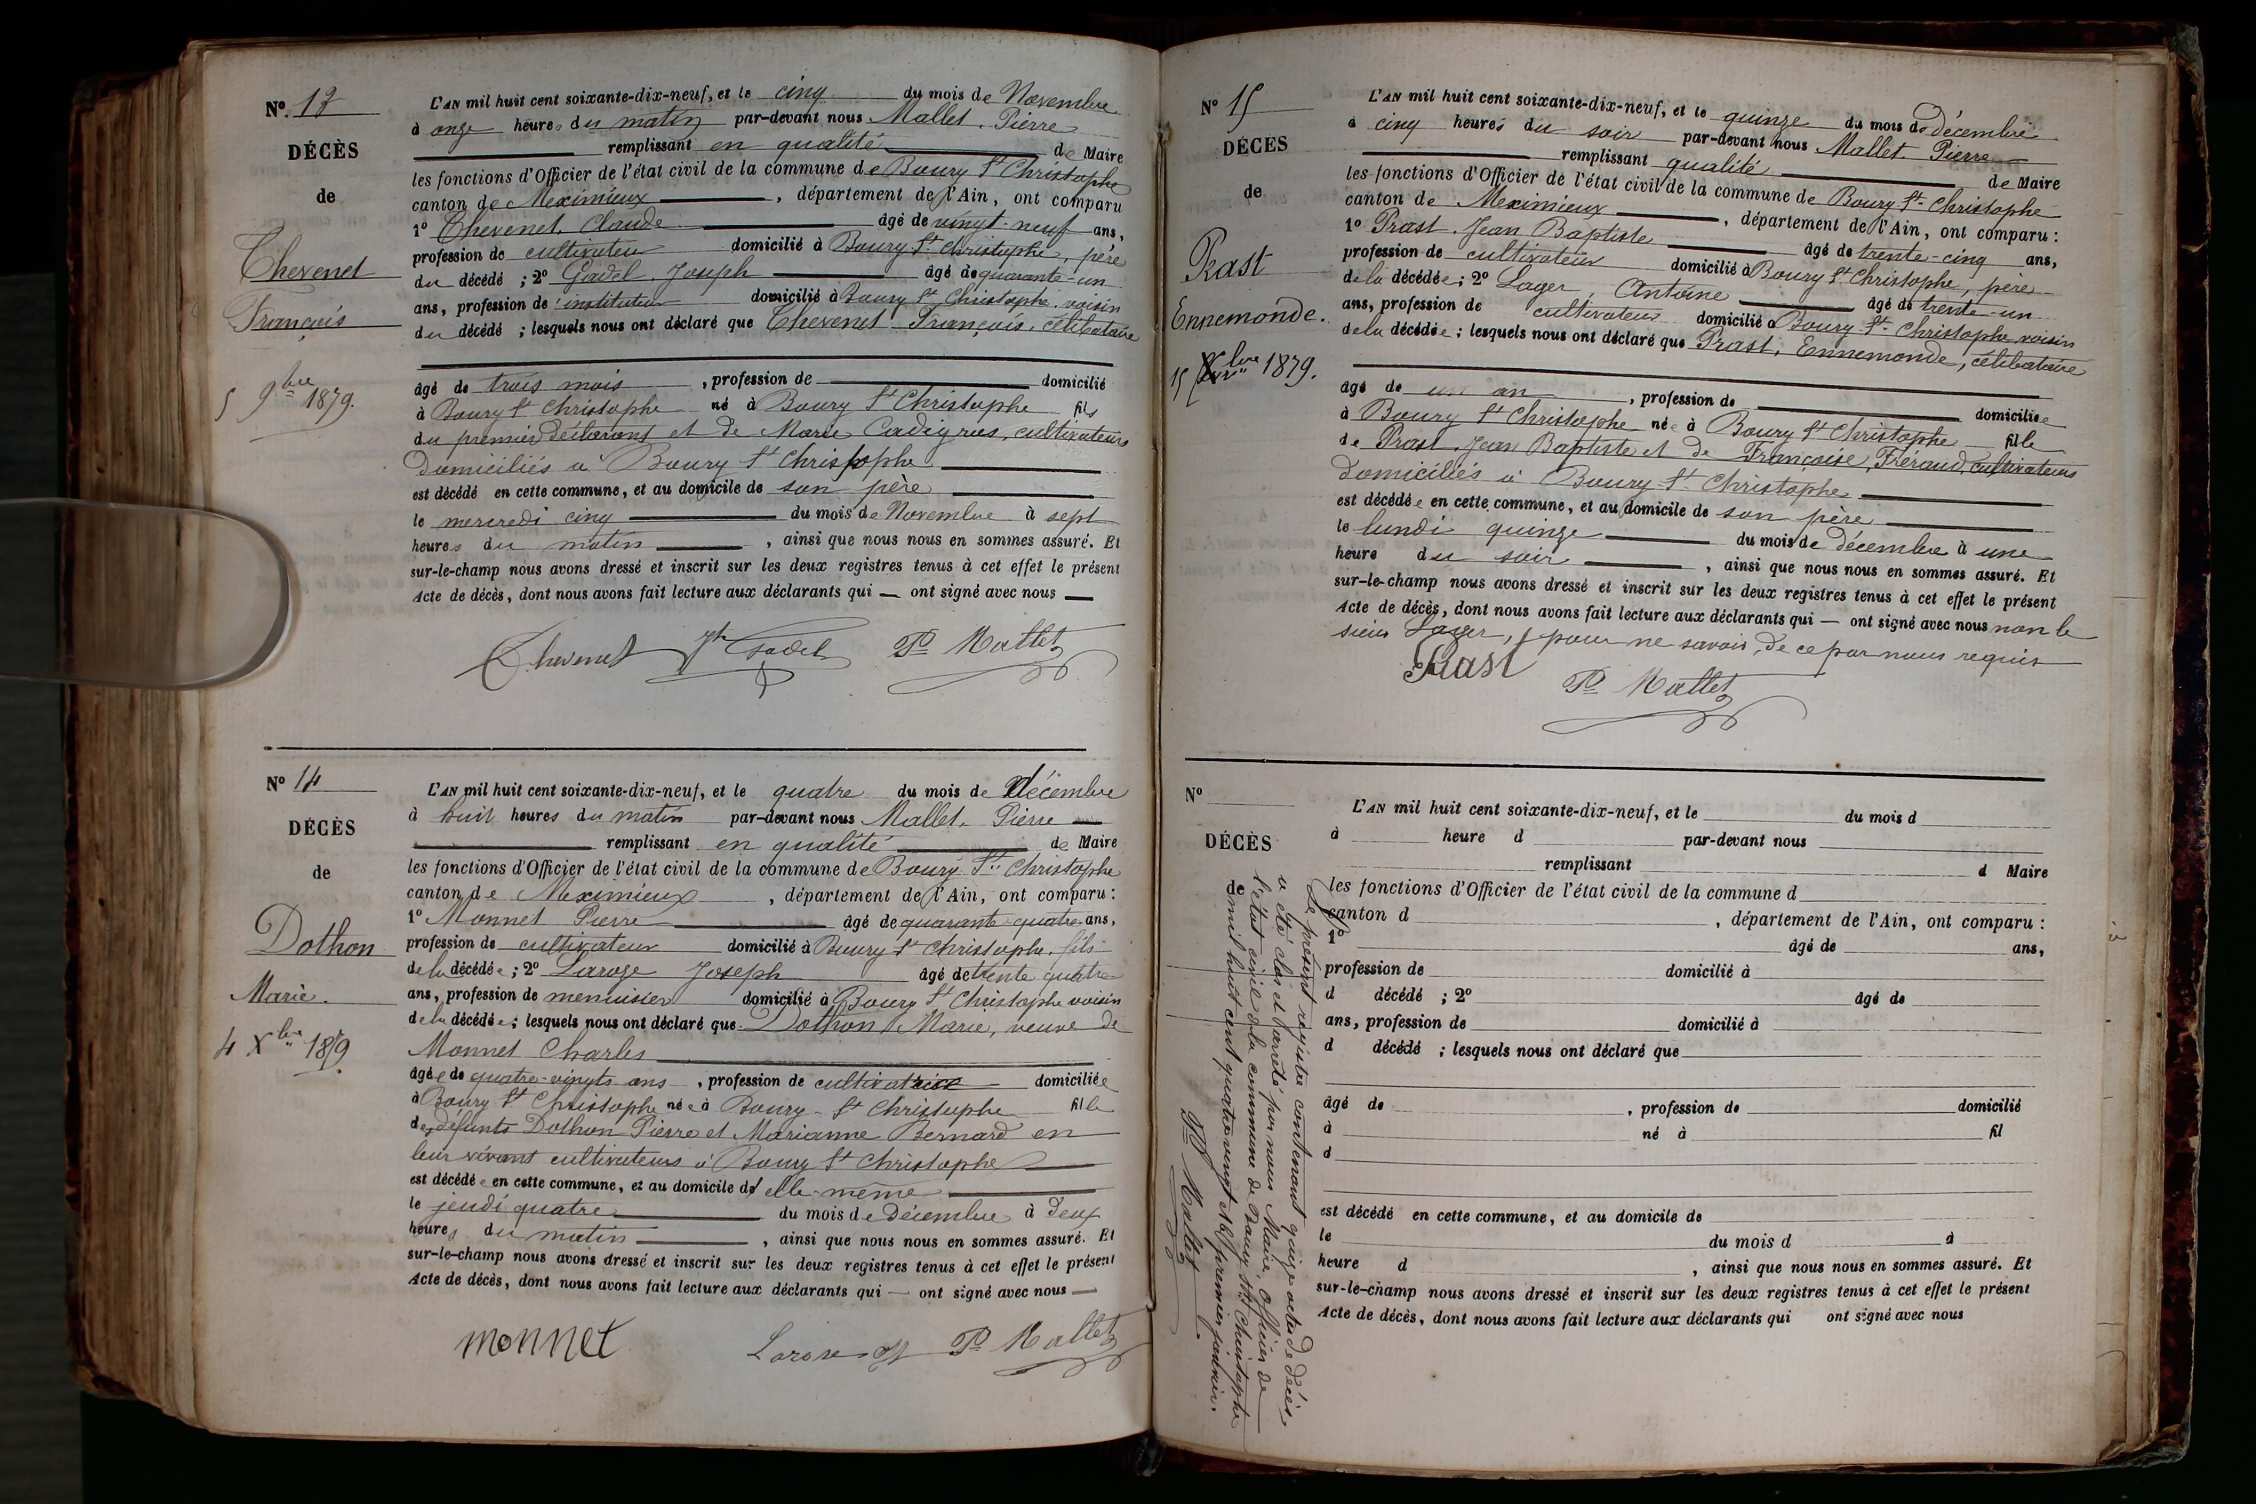 N° 13
DÉCÈS
de
Chevenet
François
5 9bre 1879.
L'AN mil huit cent soixante-dix-neuf, et le cinq du mois de Novembre
à onze heures du matin par-devant nous Mallet, Pierre
remplissant en qualité de Maire
les fonctions d'Officier de l'état civil de la commune de Bourg St Christophe
canton de Meximieux, département de l'Ain, ont comparu
1° Chevenet, Claude âgé de vingt-neuf ans,
profession de cultivateur domicilié à Bourg St Christophe, père
du décédé ; 2° Gadel, Joseph âgé de quarante-un
ans, profession de instituteur domicilié à Bourg St Christophe, voisin
du décédé ; lesquels nous ont déclaré que Chevenet François, célibataire
âgé de trois mois, profession de domicilié
à Bourg St Christophe né à Bourg St Christophe fils
du premier déclarant et de Marie cultivateurs
domiciliés à Bourg St Christophe
est décédé en cette commune, et au domicile de son père
le mercredi cinq du mois de Novembre à sept
heures du matin, ainsi que nous nous en sommes assuré. Et
sur-le-champ nous avons dressé et inscrit sur les deux registres tenus à cet effet le présent
Acte de décès, dont nous avons fait lecture aux déclarants qui — ont signé avec nous —
Chevenet Jh Gadel P. Mallet
N° 14
DÉCÈS
de
Dothon
Marie.
4 Xbre 1879
L'AN mil huit cent soixante-dix-neuf, et le quatre du mois de décembre
à huit heures du matin par-devant nous Mallet, Pierre
remplissant en qualité de Maire
les fonctions d'Officier de l'état civil de la commune de Bourg St Christophe
canton de Meximieux, département de l'Ain, ont comparu :
1° Monnet Pierre âgé de quarante-quatre ans,
profession de cultivateur domicilié à Bourg St Christophe, fils
de la décédée ; 2° Laroze Joseph âgé de trente quatre
ans, profession de menuisier domicilié à Bourg St Christophe voisin
de la décédée ; lesquels nous ont déclaré que Dothon Marie, veuve de
Monnet Charles
âgée de quatre-vingts ans, profession de cultivatrice domiciliée
à Bourg St Christophe née à Bourg-St Christophe fille
des défunts Dothon Pierre et Marianne Bernard en
leur vivant cultivateurs à Bourg St Christophe
est décédée en cette commune, et au domicile d'elle-même
le jeudi quatre du mois de décembre à deux
heures du matin, ainsi que nous nous en sommes assuré. Et
sur-le-champ nous avons dressé et inscrit sur les deux registres tenus à cet effet le présent
Acte de décès, dont nous avons fait lecture aux déclarants qui — ont signé avec nous —
monnet Laroze P. Mallet
N° 15
DÉCÈS
de
Prast
Ennemonde.
15 Xbre 1879.
L'AN mil huit cent soixante-dix-neuf, et le quinze du mois de décembre
à cinq heures du soir par-devant nous Mallet Pierre
remplissant qualité de Maire
les fonctions d'Officier de l'état civil de la commune de Bourg St-Christophe
canton de Meximieux, département de l'Ain, ont comparu :
1° Prast, Jean Baptiste âgé de trente-cinq ans,
profession de cultivateur domicilié à Bourg St Christophe, père
de la décédée ; 2° Lager, Antoine âgé de trente-un
ans, profession de cultivateur domicilié à Bourg St-Christophe voisin
de la décédée ; lesquels nous ont déclaré que Prast, Ennemonde, célibataire
âgé de un an, profession de domiciliée
à Bourg St Christophe née à Bourg St Christophe fille
de Prast, Jean Baptiste et de Françoise Féraud, cultivateurs
domiciliés à Bourg St Christophe
est décédée en cette commune, et au domicile de son père
le lundi quinze du mois de décembre à une
heure du soir, ainsi que nous nous en sommes assuré. Et
sur-le-champ nous avons dressé et inscrit sur les deux registres tenus à cet effet le présent
Acte de décès, dont nous avons fait lecture aux déclarants qui — ont signé avec nous non le
sieur Lager, pour ne savoir, de ce par nous requis
Prast
P. Mallet
N°
DÉCÈS
de
L'AN mil huit cent soixante-dix-neuf, et le du mois d
à heure d par-devant nous
remplissant d Maire
les fonctions d'Officier de l'état civil de la commune d
canton d, département de l'Ain, ont comparu :
1° âgé de ans,
profession de domicilié à
d décédé ; 2° âgé de
ans, profession de domicilié à
d décédé ; lesquels nous ont déclaré que
âgé de, profession de domicilié
à né à fil
d
est décédé en cette commune, et au domicile de
le du mois d à
heure d, ainsi que nous nous en sommes assuré. Et
sur-le-champ nous avons dressé et inscrit sur les deux registres tenus à cet effet le présent
Acte de décès, dont nous avons fait lecture aux déclarants qui ont signé avec nous
Le présent registre contenant quinze actes de décès
a été clos et arrêté par nous Maire, Officier de
l'état civil de la commune de Bourg St Christophe
mil huit cent quatre-vingt le premier janvier.
P. Mallet